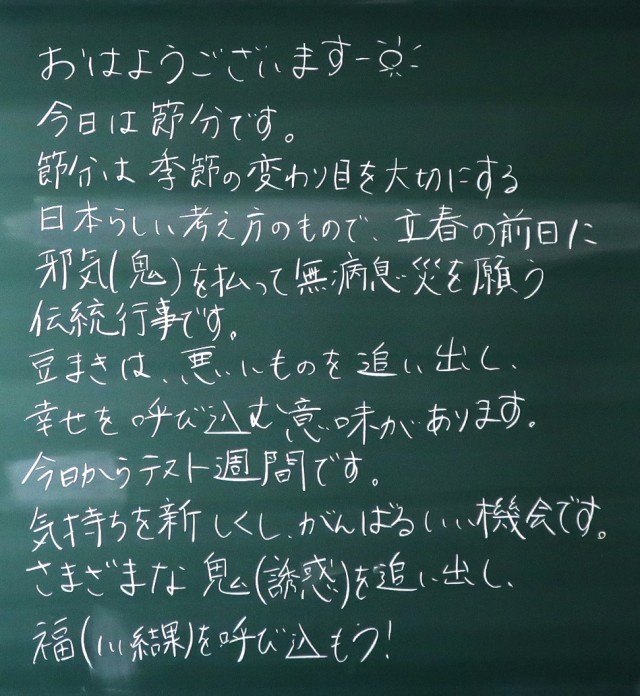 おはようございます
今日は節分です。
節分は季節の変わり目を大切にする
日本らしい考え方のもので、立春の前日に
邪気(鬼)を払って無病息災を願う
伝統行事です。
豆まきは、悪いものを追い出し、
幸せを呼び込む意味があります。
今日からテスト週間です。
気持ちを新しくし、がんばるいい機会です。
さまざまな鬼(誘惑)を追い出し、
福(いい結果)を呼び込もう!